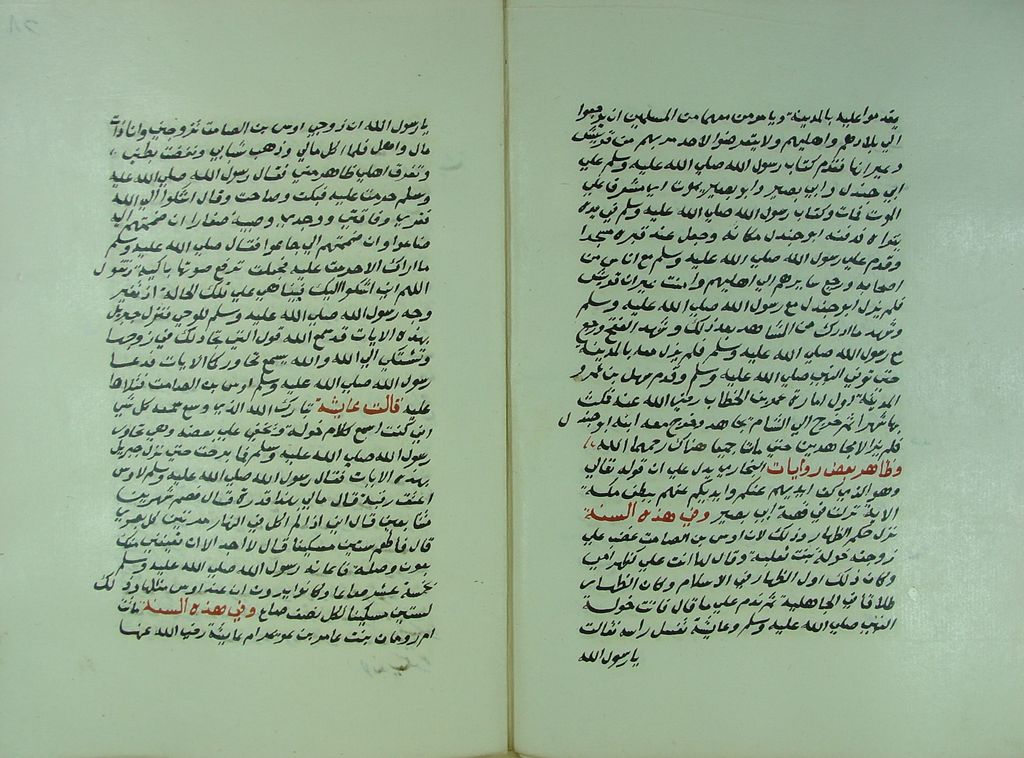 يقدموا عليه بالمدينة ويامر من معهما من المسلمين ان يرجعوا
الي بلادهم واهليهم ولا يتعرضوا لاحد مر بهم من قريش
وعيرانها فقدم كتاب رسول الله صلي الله عليه وسلم علي
ابي جندل وابي بصير وابو بصير يموت اي مشرف علي
الموت فمات وكتاب رسول الله صلي الله عليه وسلم في يده
يقراه فدفنه ابو جندل مكانه وجعل عند قبره مسجدا
وقدم علي رسول الله صلي الله عليه وسلم مع اناس من
اصحابه ورجع سايرهم الي اهليهم وامنت عيران قريش
فلم يزل ابو جندل مع رسول الله صلي الله عليه وسلم
وشهد ما ادرك من المشاهد بعد ذلك وشهد الفتح ورجع
مع رسول الله صلي الله عليه وسلم فلم يزل معه بالمدينة
حتي توفي النبي صلي الله عليه وسلم وقدم سهيل بن عمرو
المدينة اول امارة عمر بن الخطاب رضي الله عنه فمكث
بها شهرا ثم خرج الي الشام مجاهدا وخرج معه ابنه ابو جندل
فلم يزالا مجاهدين حتي ماتا جميعا هناك رحمهما الله
وظاهر بعض روايات البخاري يدل علي ان قوله تعالي
وهو الذي كف ايديهم عنكم وايديكم عنهم ببطن مكة
الاية نزلت في قصة ابي بصير وفي هذه السنة
نزل حكم الظهار وذلك لان اوس بن الصامت غضب علي
زوجته خولة بنت ثعلبة وقال لها انت علي كظهر امي
وكان ذلك اول الظهار في الاسلام وكان الظهار
طلاقا في الجاهلية ثم ندم علي ما قال فاتت خولة
النبي صلي الله عليه وسلم وعايشة تغسل راسه فقالت
يا رسول الله
يا رسول الله ان زوجي اوس بن الصامت تزوجني وانا ذات
مال واهل فلما اكل مالي وذهب شبابي ونفضت بطني
وتفرق اهلي ظاهر مني فقال رسول الله صلي الله عليه
وسلم حرمت عليه فبكت وصاحت وقال اشكوا الي الله
فقري وفاقتي ووجدي وصبية صغارا ان ضممتهم اليه
ضاعوا وان ضممتهم الي جاعوا فقال صلي الله عليه وسلم
ما اراك الا حرمت عليه فجعلت ترفع صوتها باكية وتقول
اللهم اني اشكوا اليك فبينا هي علي تلك الحالة اذ تغير
وجه رسول الله صلي الله عليه وسلم للوحي فنزل جبريل
بهذه الايات قد سمع الله قول التي تجادلك في زوجها
وتشتكي الي الله والله يسمع تحاوركما الايات فدعا
رسول الله صلي الله عليه وسلم اوس بن الصامت فتلاها
عليه قالت عايشة تبارك الله الذي وسع سمعه كل شي
اني كنت اسمع كلام خولة ويخفي علي بعضه وهي تحاور
رسول الله صلي الله عليه وسلم فما برحت حتي نزل جبريل
بهذه الايات فقال رسول الله صلي الله عليه وسلم لاوس
اعتق رقبة قال مالي بهذا قدرة قال فصم شهرين
متتابعين قال اني اذا لم اكل في النهار مرتين كل بصري
قال فاطعم ستين مسكينا قال لا اجد الا ان تعينني منك
بعون وصلة فاعانه رسول الله صلي الله عليه وسلم
بخمسة عشر صاعا وكانوا يرون ان عند اوس مثلها وذلك
لستين مسكينا لكل نصف صاع وفي هذه السنة ماتت
ام رومان بنت عامر بن عويمر ام عايشة رضي الله عنها